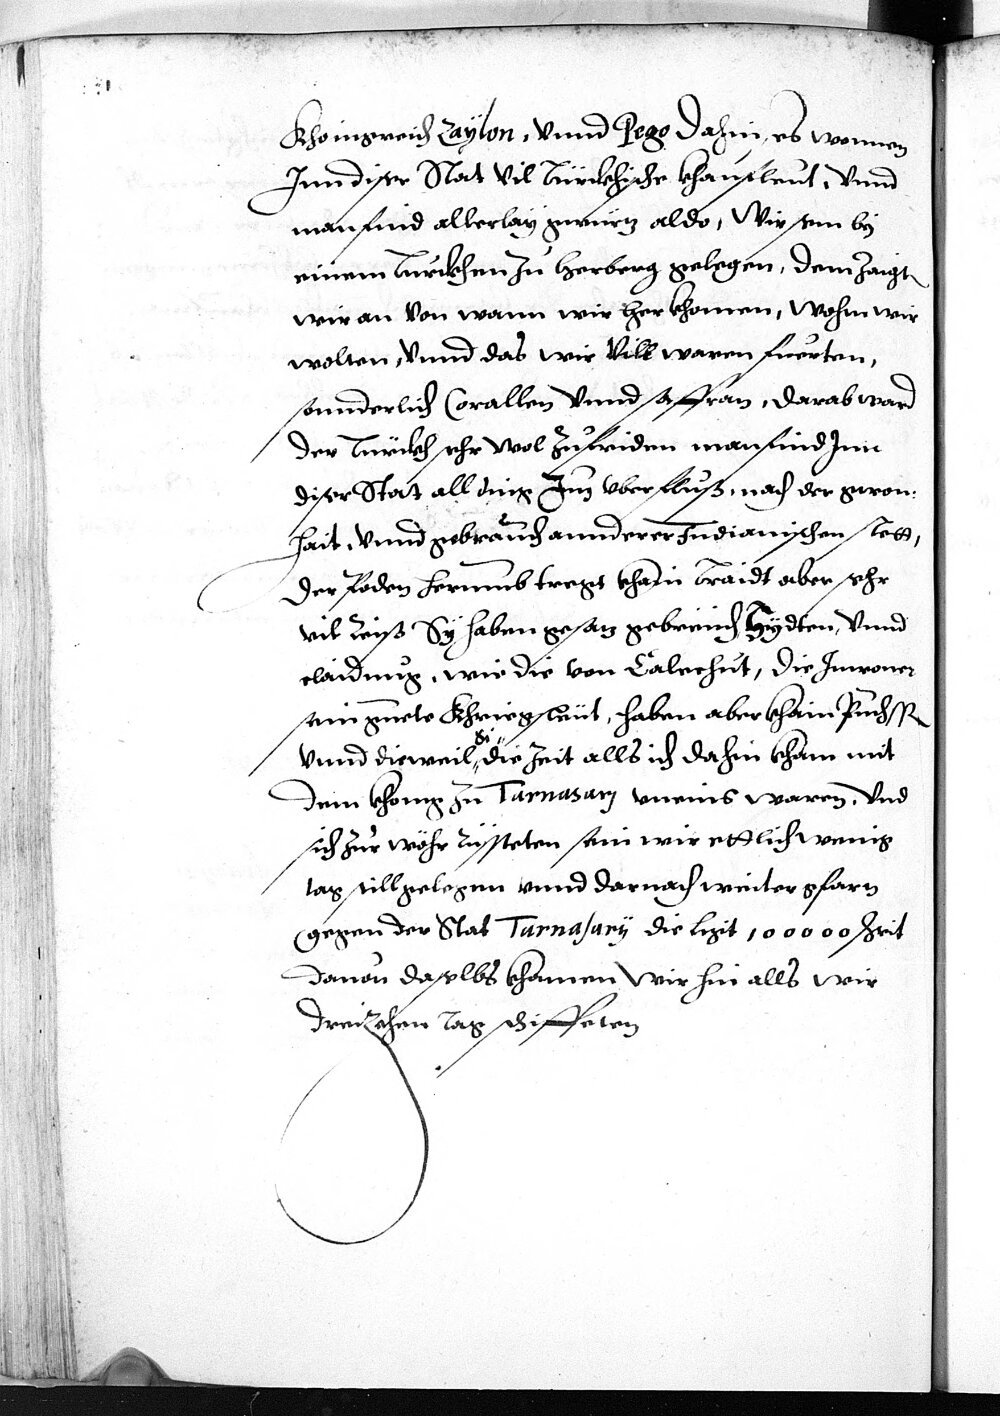 Khoingreich Zaylon, vnnd Pego Dahin, es wonnen
Jnn diser Stat vil Türckhische khaufleut, vnnd
man find allerlay gwürtz aldo, Wir sein bÿ
einem Turckhen zu herberg gelegen, dem zaigt
wir an von wann wir her khomen, wohin wir
wolten, vnnd das wir vill waren fuerten,
sonnderlich Corallen vnnd saffran, darab ward
der Türckh sehr wol zufriden man find Jnn
diser Stat all ding Jm vberfluß, nach der gwon:
hait, vnnd gebrauch annderer Indianischen stett,
der Boden herumb tregt khain traidt aber sehr
vil Reiß Sÿ haben gesatz gebreuch Sÿdten, vnnd
claidung, wie die von Calechut, die Jnwoner
sein guete Khriegsleüt, haben aber khain Püchssen
vnnd dieweil si die zeit alls ich dahin kham mit
dem khonig zu Tarnasarÿ vneins waren, vnd
sich zur wöhr rüssteten sein wir ettlich wenig
tag still gelegen vnnd darnach weiter gfarn
gegen der Stat Tarnasarÿ die ligt 100000 schrit
dauon daselbs khamen wir hin alls wir
dreizehen tag schiffeten